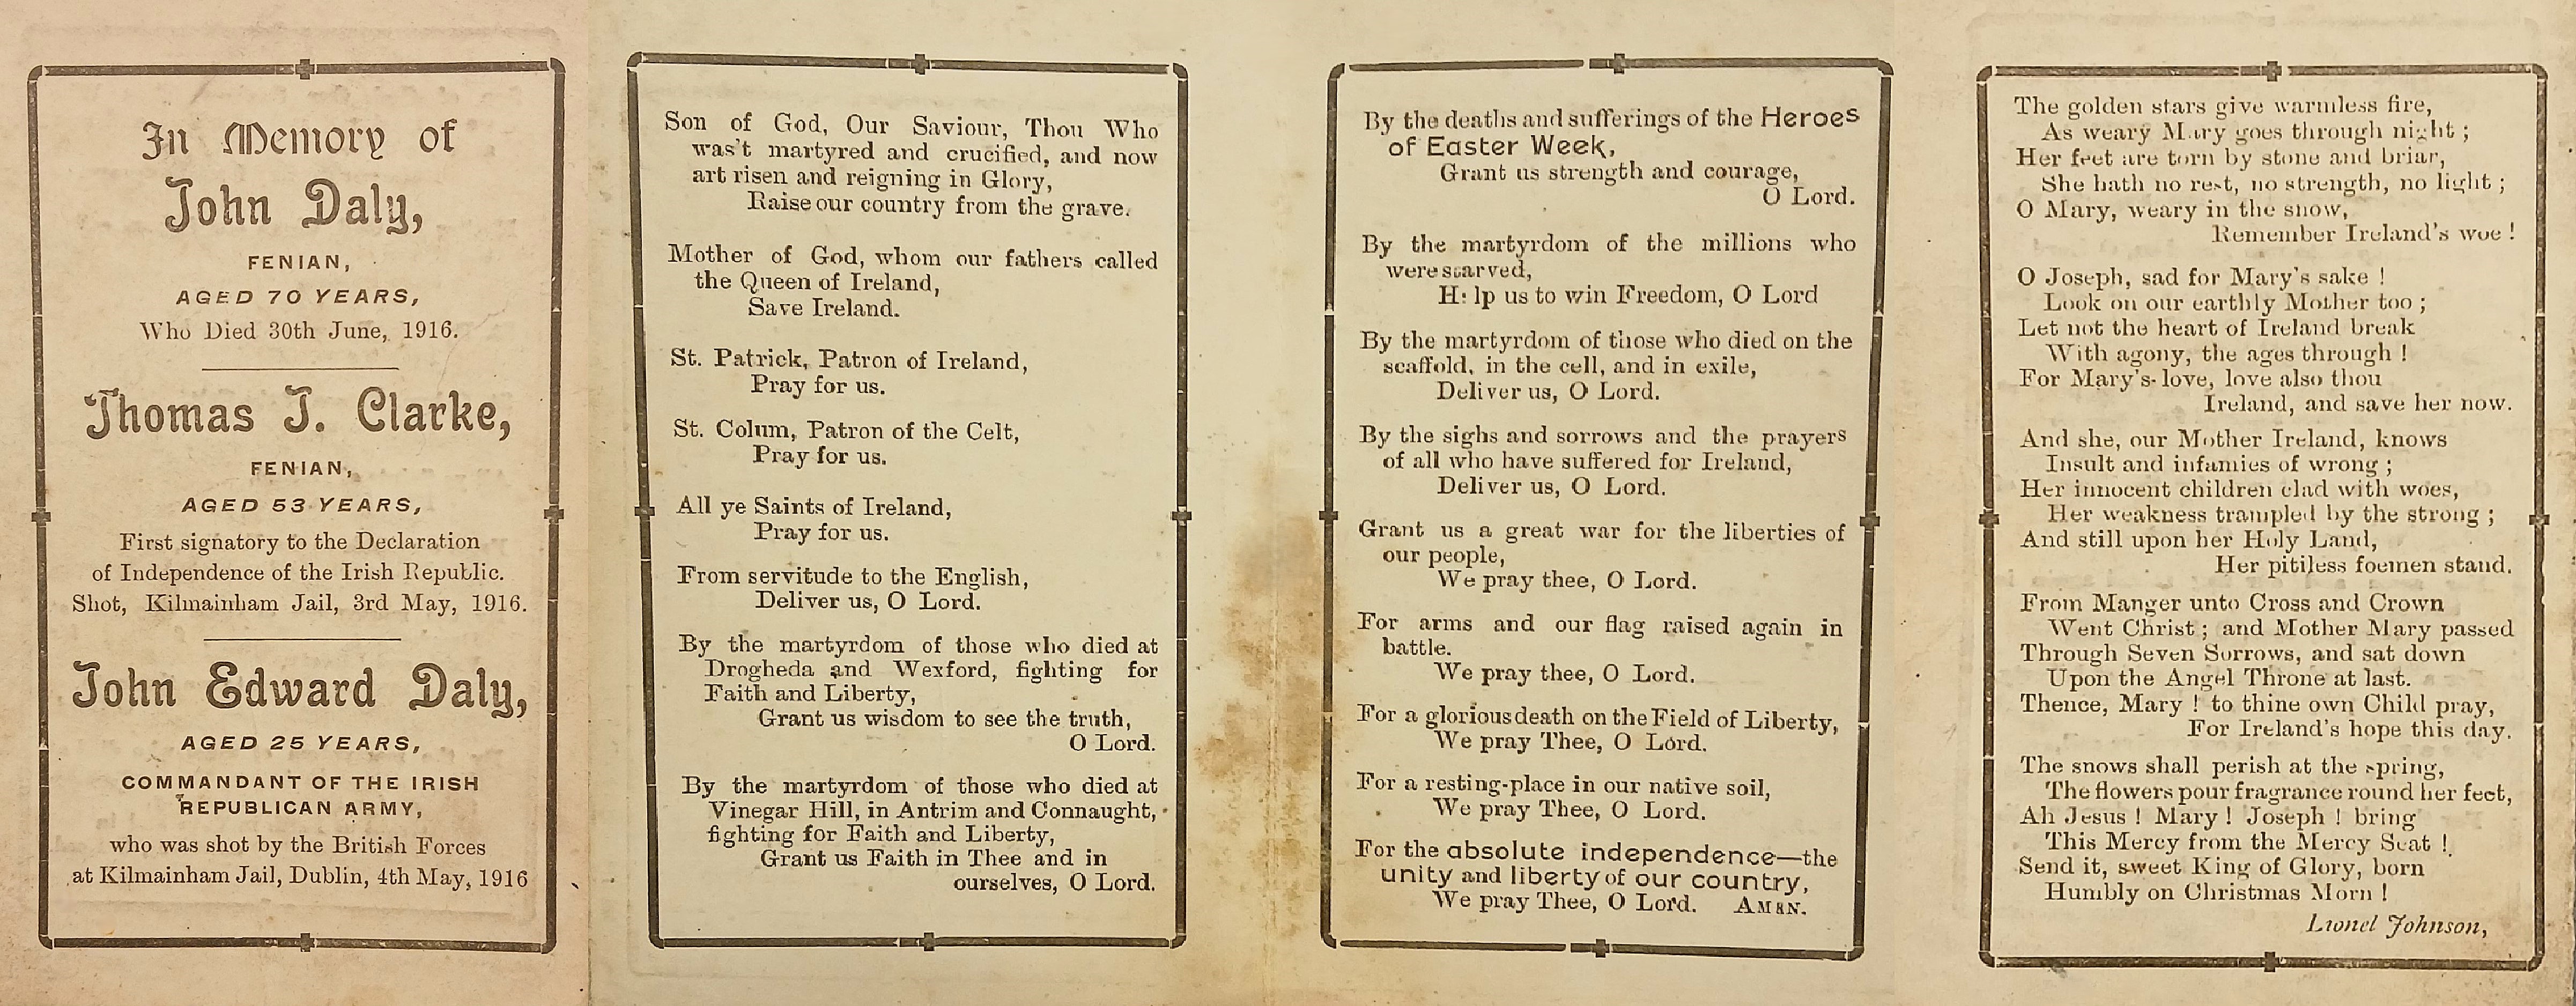 In Memory of
John Daly,
FENIAN,
AGED 70 YEARS,
Who Died 30th June, 1916.
Thomas J. Clarke,
FENIAN,
AGED 53 YEARS,
First signatory to the Declaration
of Independence of the Irish Republic.
Shot, Kilmainham Jail, 3rd May, 1916.
John Edward Daly,
AGED 25 YEARS,
COMMANDANT OF THE IRISH
REPUBLICAN ARMY,
who was shot by the British Forces
at Kilmainham Jail, Dublin, 4th May, 1916
Son of God, Our Saviour, Thou Who
was't martyred and crucified, and now
art risen and reigning in Glory,
Raise our country from the grave.
Mother of God, whom our fathers called
the Queen of Ireland,
Save Ireland.
St. Patrick, Patron of Ireland,
Pray for us.
St. Colum, Patron of the Celt,
Pray for us.
All ye Saints of Ireland,
Pray for us.
From servitude to the English,
Deliver us, O Lord.
By the martyrdom of those who died at
Drogheda and Wexford, fighting for
Faith and Liberty,
Grant us wisdom to see the truth,
O Lord.
By the martyrdom of those who died at
Vinegar Hill, in Antrim and Connaught,
fighting for Faith and Liberty,
Grant us Faith in Thee and in
ourselves, O Lord.
By the deaths and sufferings of the Heroes
of Easter Week,
Grant us strength and courage,
O Lord.
By the martyrdom of the millions who
were starved,
Help us to win Freedom, O Lord
By the martyrdom of those who died on the
scaffold, in the cell, and in exile,
Deliver us, O Lord.
By the sighs and sorrows and the prayers
of all who have suffered for Ireland,
Deliver us, O Lord.
Grant us a great war for the liberties of
our people,
We pray thee, O Lord.
For arms and our flag raised again in
battle.
We pray thee, O Lord.
For a glorious death on the Field of Liberty,
We pray Thee, O Lord.
For a resting-place in our native soil,
We pray Thee, O Lord.
For the absolute independence—the
unity and liberty of our country,
We pray Thee, O Lord. AMEN.
The golden stars give warmless fire,
As weary Mary goes through night ;
Her feet are torn by stone and briar,
She hath no rest, no strength, no light ;
O Mary, weary in the snow,
Remember Ireland's woe !
O Joseph, sad for Mary's sake !
Look on our earthly Mother too ;
Let not the heart of Ireland break
With agony, the ages through !
For Mary's love, love also thou
Ireland, and save her now.
And she, our Mother Ireland, knows
Insult and infamies of wrong ;
Her innocent children clad with woes,
Her weakness trampled by the strong ;
And still upon her Holy Land,
Her pitiless foemen stand.
From Manger unto Cross and Crown
Went Christ ; and Mother Mary passed
Through Seven Sorrows, and sat down
Upon the Angel Throne at last.
Thence, Mary ! to thine own Child pray,
For Ireland's hope this day.
The snows shall perish at the spring,
The flowers pour fragrance round her feet,
Ah Jesus ! Mary ! Joseph ! bring
This Mercy from the Mercy Seat !
Send it, sweet King of Glory, born
Humbly on Christmas Morn !
Lionel Johnson,